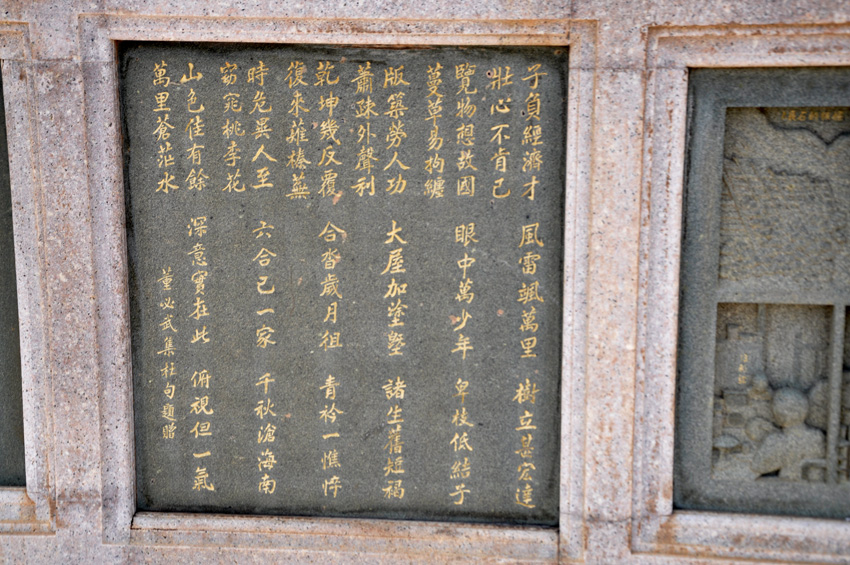 子負經濟才 風雷颯萬里 樹立甚宏達
壯心不肯已
覽物想故國 眼中萬少年 卑枝低結子
蔓草易拘纏
版築勞人功 大屋加塗墍 諸生舊短褐
蕭疎外聲利
乾坤幾反覆 合沓歲月徂 青衿一憔悴
復來薙榛蕪
時危異人至 六合已一家 千秋滄海南
窈窕桃李花
山色佳有餘 深意實在此 俯視但一氣
萬里蒼茫水 董必武集杜句題贈